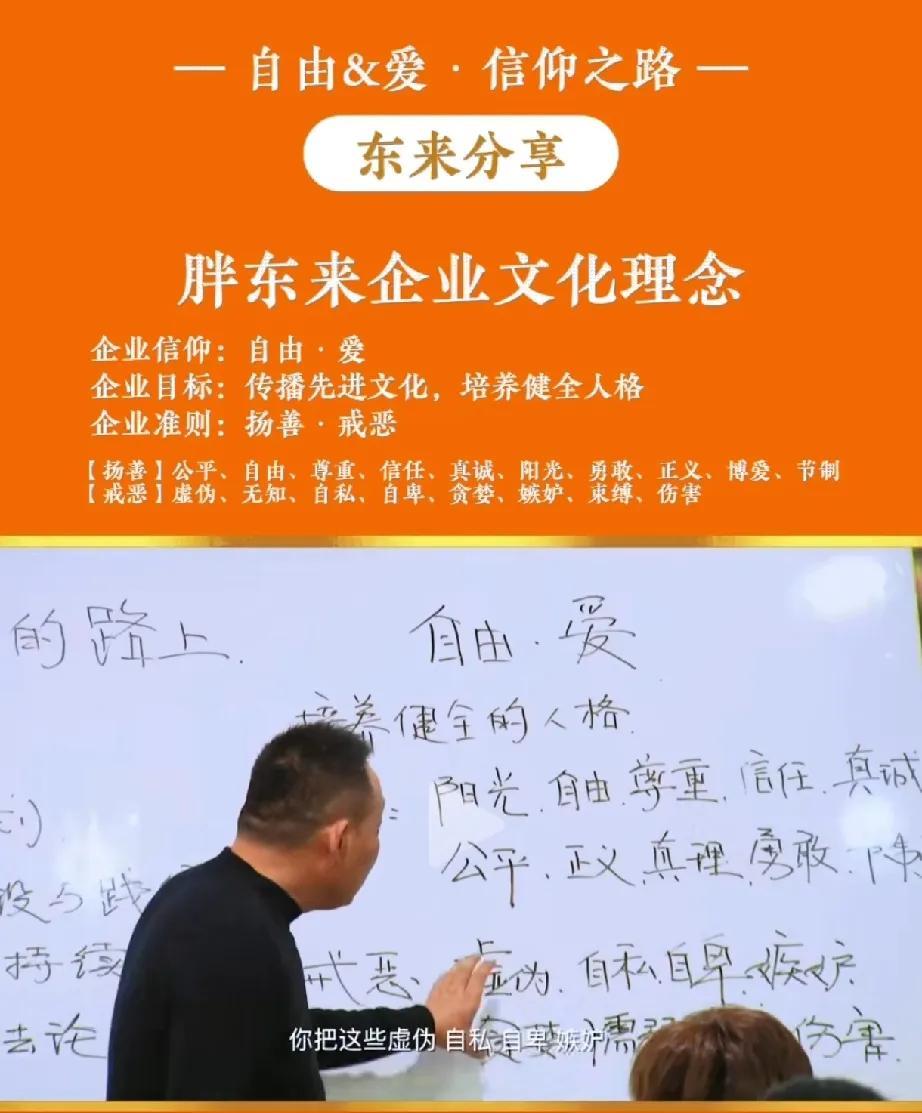 — 自由&爱·信仰之路 —
东来分享
胖东来企业文化理念
企业信仰：自由·爱
企业目标：传播先进文化，培养健全人格
企业准则：扬善·戒恶
【扬善】公平、自由、尊重、信任、真诚、阳光、勇敢、正义、博爱、节制
【戒恶】虚伪、无知、自私、自卑、贪婪、嫉妒、束缚、伤害
的路上.
自由·爱
培养健全的人格.
: 阳光.自由.尊重.信任.真诚
公平.正义.真理.勇敢.
设与践
持续
戒恶:虚伪.自私.自卑.嫉妒
去论
伤害.
你把这些虚伪 自私 自卑 嫉妒